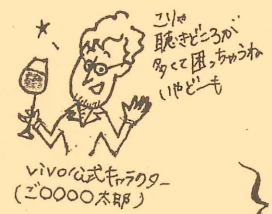 こりゃ
聴きどころが
多くて困っちゃうね
いやどーも
vivo公式キャラクター
(ご〇〇〇〇太郎)